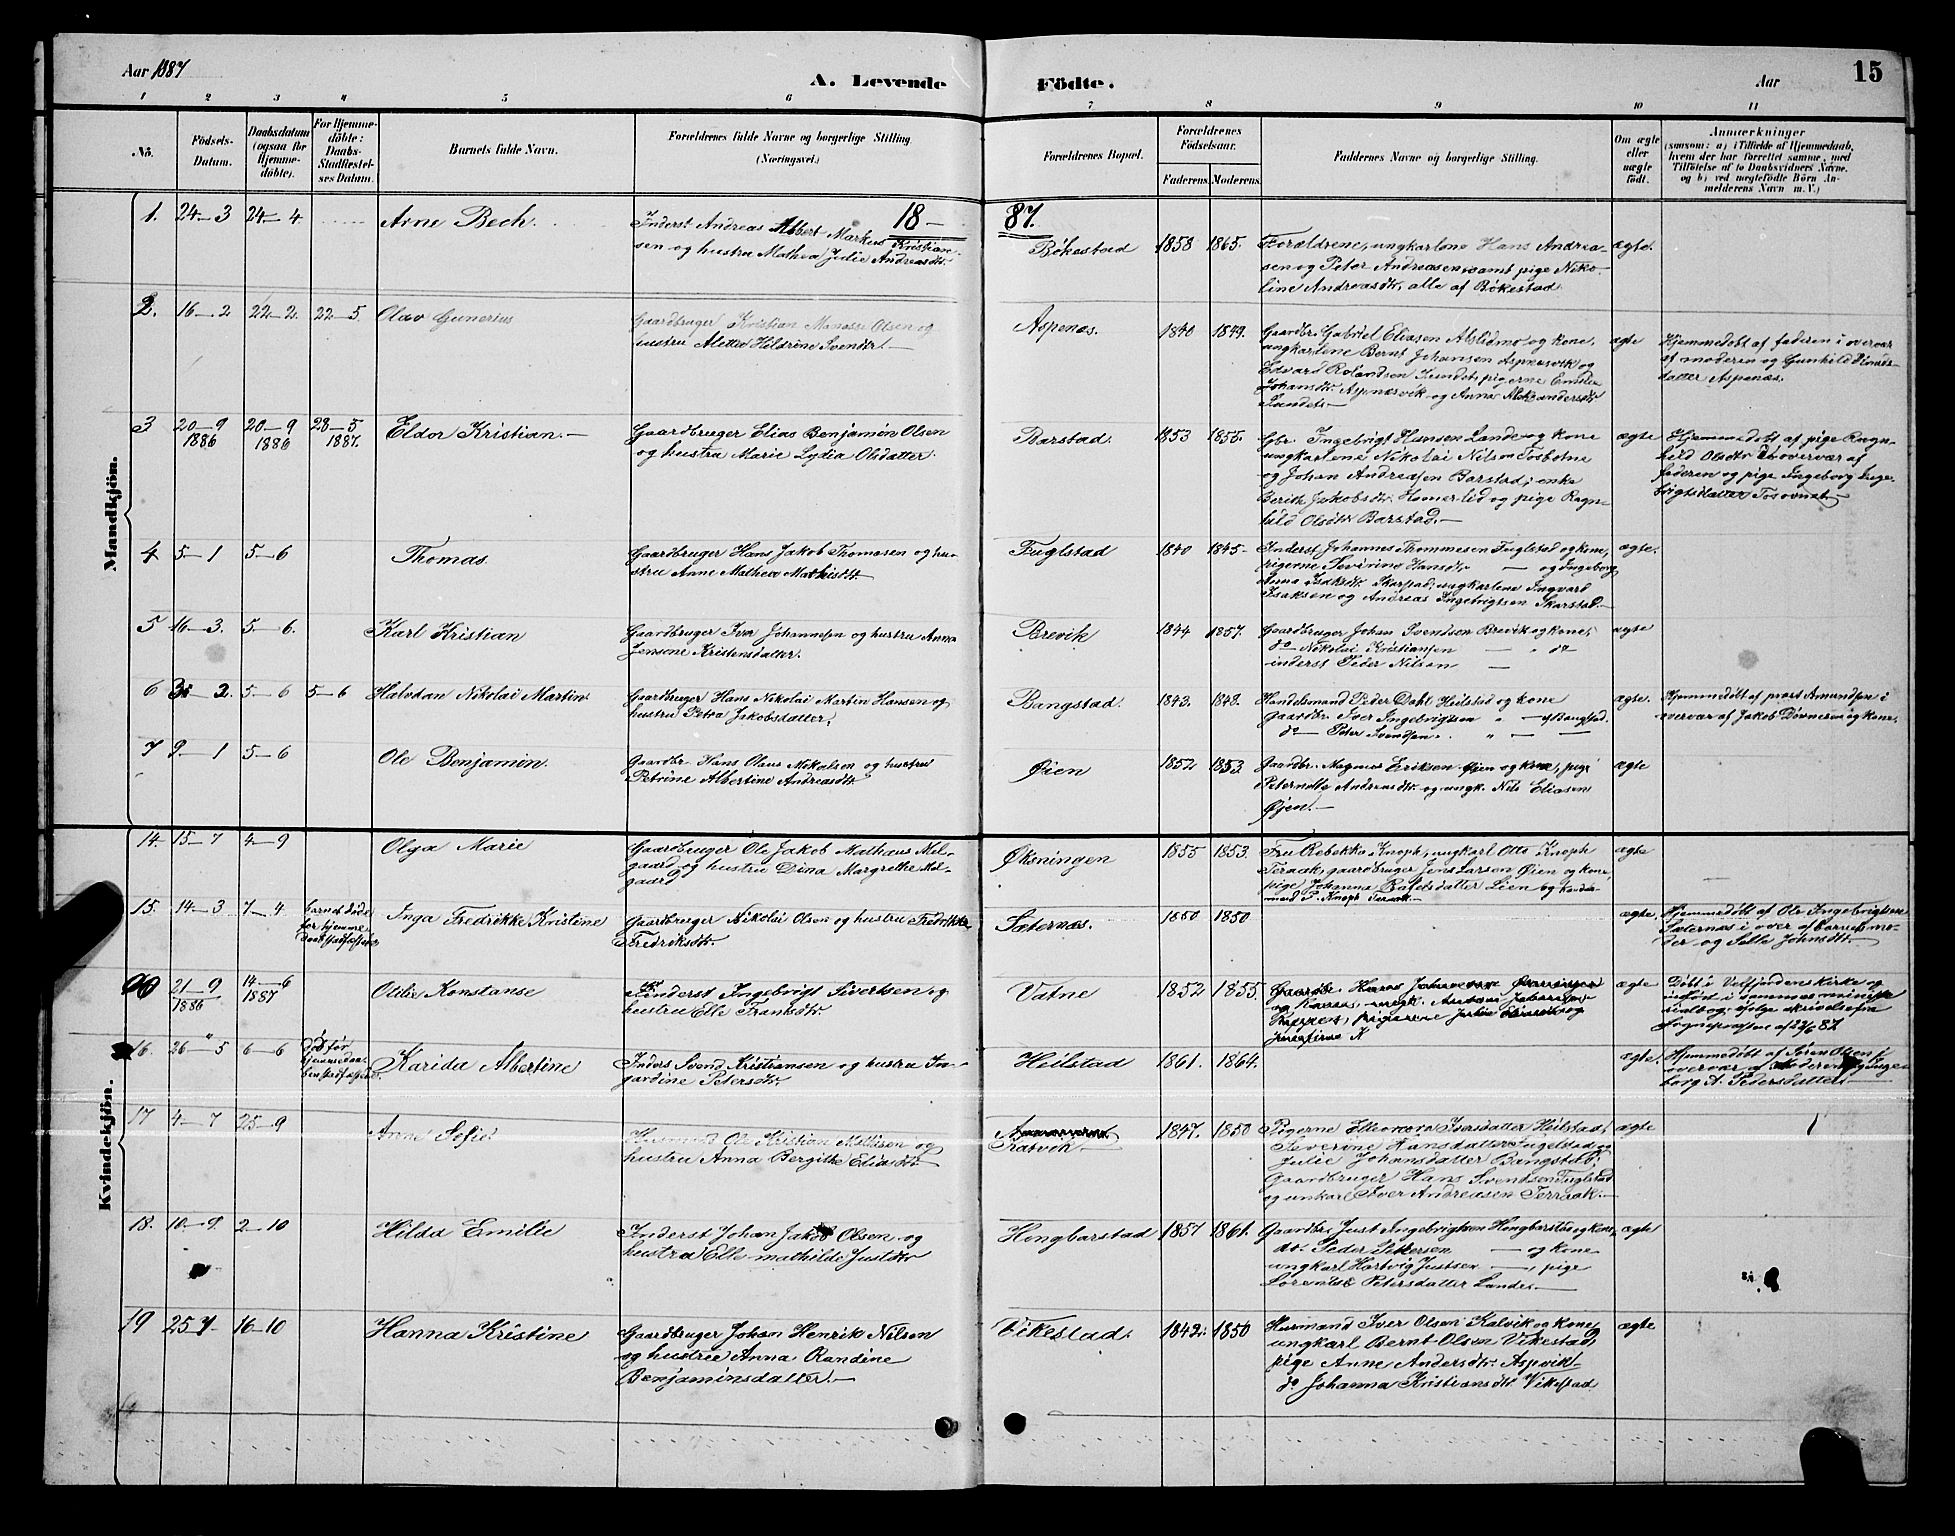 Aar 1887
A. Levende
Födte.
Aar
15
1 2 3 4 5 6 7 8 9 10 11
No.
Födsels-
Datum.
Daabsdatum
(ogsaa for
Hjemme-
döbte).
For Hjemme-
döbte:
Daabs-
Stadfæstel-
ses Datum.
Barnets fulde Navn.
Forældrenes fulde Navne og borgerlige Stilling.
(Næringsvei.)
Forældrenes Bopæl.
Forældrenes
Födselsaar.
Faderens. Moderens.
Faddernes Navne og borgerlige Stilling.
Om ægte
eller
uægte
födt.
Anmærkninger
(saasom: a) i Tilfælde af Hjemmedaab,
hvem der har forrettet samme, med
Tilföielse af to Daabsvidners Navne.
og b) ved uægtefödte Börn An-
melderens Navn m. V.)
Mandkjön.
18 — 87.
1. 24—3 24—4 Arne Bech. Inderst Andreas Albert Markus Kristian-
sen og hustru Mathea Julie Andreasdtr.
Bökestad 1858 1865. Forældrene, ungkarlene Hans Andrea-
sen og Peter Andreasen samt pige Niko-
line Andreasdtr, alle af Bökestad. ægte.
2. 16—2 22—2. 22—5. Olav Gunerius Gaardbruger Kristian Manasse Olsen og
hustru Aletta Hildrine Svendtr.—
Aspenæs. 1840 1849. Gaardbr. Gabriel Eliasen Alslidmo og kone,
ungkarlene Bernt Johansen Aspnesvik og
Edvard Rolandsen Sundet, pigerne Emilie
Johansdtr. Aspnæsvik og Anna Aleksandersdtr
Sundet.— ægte
Hjemmedöbt af faderen i overvær
af moderen og Gunhild
datter Aspenæs.
3 20—9 1886 20—9 1886 28—5 1887. Eldor Kristian.— Gaardbruger Elias Benjamin Olsen
og hustru Marie Lydia Olsdatter.
Barstad. 1853 1855. Gbr. Ingebrigt Hansen Lande og kone
ungkarlene Nikolai Nilsen Tosbotne
og Johan Andreasen Barstad; enke
Berith Jakobsdtr. Homerlid og pige Ragn-
hild Olsdtr Barstad.— ægte
Hjemmedöbt af pige Ragn-
hild Olsdtr i overvær af
faderen og pige Ingeborg Inge-
brigtsdatter
4 5—1 5—6 Thomas. Gaardbruger Hans Jakob Thomasen og hu-
stru Anne Mathea Mathisdtr.
Fuglstad 1840 1845— Inderst Johannes Thommesen Fuglstad og kone,
pigerne Severine Hansdtr — og Ingeborg
Anna Isaksdtr. Skarstad, ungkarlene Ingvart
Isaksen og Andreas Ingebrigtsen Skarstad.— ægte.
5 16—3. 5—6. Karl Kristian Gaardbruger Iver Johannesen og hustru Anna
Jensine Kristensdatter.
Brevik 1844 1857. Gaardbruger Johan Svendsen Brevik og kone,
do Nikolai Kristiansen — " do
inderst Peder Nilsen — ægte
6 —2. 5—6 5—6 Halvdan Nikolai Martin Gaardbruger Hans Nikolai Martin Hansen og
hustru Petra Jakobsdatter.
Bangstad. 1843. 1848. Handelsmand Peder Dahl Heilstad og kone
gaardbr. Iver Ingebrigtsen " — af Bangstad.
do — Peter Svendsen. " — — ægte.
Hjemmedöbt af prost Amundsen i
overvær af Jakob og kone.
7 9—1 5—6 Ole Benjamin. Gaardbr. Hans Olaus Nikolsen og hustru
Petrine Albertine Andreasdtr.
Øien 1852 1853 Gaardbr. Magnus Eriksen Øien og kone, pige
Peternelle Andreasdtr. og ungk. Nils Eliasen
Øjen.— ægte
Kvindekjön.
14. 15—7 4—9 Olga Marie Gaardbruger Ole Jakob Mathæus Mel-
gaard og hustru Dina Margrethe Mel-
gaard
Økningen 1855 1853. Fru Rebekka Knoph, ungkarl Otto Knoph
Teraak, gaardbruger Jens Larsen Øien og kone,
pige Johanna Lien og
P. Knoph Teraak.— ægte
15. 14—3 7—4 barnet døde
før hjemme-
daab stadfæstes Inga Fredrikke Kristine Gaardbruger Nikolai Olsen og hustru Fredrikke
Fredriksdtr.
Sæternæs. 1850 1850 ægte, Hjemmedöbt af Ole Ingebrigtsen
Sæternæs i over af barnets mo-
der og Johnsdtr.
21—9 1886 14—6 1887 Ottilie Konstanse Inderst Ingebrigt Sivertsen og
hustru Elle Fransdtr.
Vatne 1852 1855. ægte Döbt i Velfjordens kirke og
indfört i sammes ministe-
rialbog, ifölge skrivelse fra
Sognepresten af 22/6 87.
16. 26—5 6—6 död før
hjemmedaa-
ben stadfæstedes Karida Albertine Inders Svend Kristiansen og hustru In-
gardine Petersdtr.
Heilstad 1861. 1864. ægte. Hjemmedöbt af Sören Olsen i
overvær af moderen og Inge-
borg A. Pedersdatter.—
17 4—7 25—9 Anne Sofie Husmand Ole Kristian Mathisen og
hustru Anna Bergithe Eliasdtr.
Katvik.— 1847. 1850 Pigerne Ellenora Iversdatter Heilstad,
Severine Hansdatter Fuglstad og
Julie Johansdatter Bangstad,
gaardbruger Hans Svendsen Fuglstad
og unkarl Iver Andreasen Terraak.— ægte
18. 10—9. 2—10 Hilda Emilie Inderst Johan Jakob Olsen og
hustru Elle-mathilde Justdtr
Hongbarstad 1857 1861. Gaardbr. Just Ingebrigtsen Hongbarstad og kone,
do. Peder Pettersen — og kone
ungkarl Hartvig Justsen —, pige
Lorentse Petersdatter Lande.— ægte
19 25 7— 16—10 Hanna Kristine Gaardbruger Johan Henrik Nilsen
og hustru Anna Randine
Benjaminsdatter.—
Vikestad. 1842. 1850 Husmand Iver Olsen Kalvik og kone,
ungkarl Bernt Olsen Vikestad,
pige Anne Andersdtr. Aspvik,
do Johanna Kristiansdtr Vikestad ægte